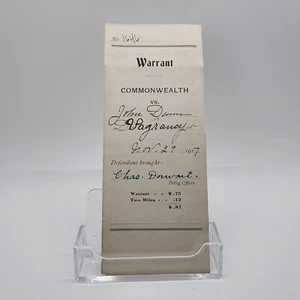 No. 1646
Warrant
COMMONWEALTH
VS.
John Dunn
Vagrancy
Nov. 29 1917
Defendant brought:
Chas.
Police Officer.
Warrant - - $ .75
Two Miles - - .12
$ .87